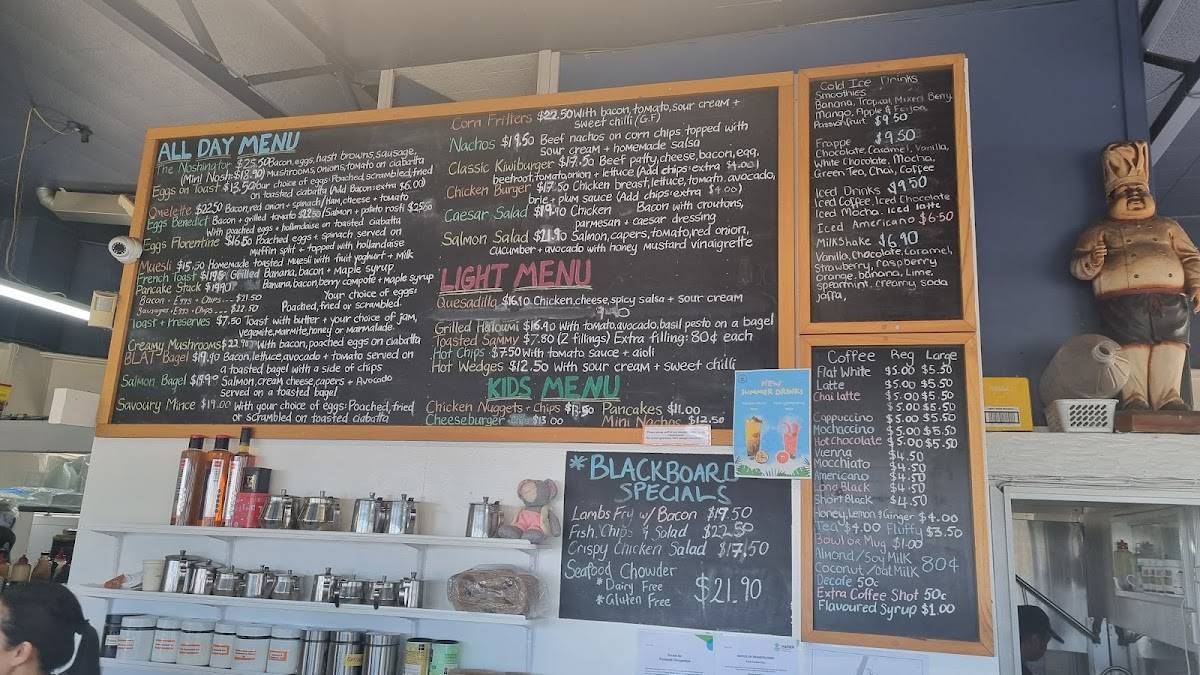 ALL DAY MENU
The Noshinator $25.50 Bacon, eggs, hash browns, sausage,
(Mini Nosh $18.90) Mushrooms, onions, tomato on ciabatta
Eggs on Toast $13.50 Your choice of eggs: Poached, scrambled, fried
on toasted ciabatta (Add Bacon: extra $6.00)
Omelette $22.50 Bacon, red onion + spinach / Ham, cheese + tomato
Eggs Benedict Bacon + grilled tomato $22.50 / Salmon + potato rosti $25.50
With poached eggs + hollandaise on toasted ciabatta
Eggs Florentine $16.50 Poached eggs + spinach served on
muffin split + topped with hollandaise
Muesli $15.50 Homemade toasted muesli with fruit yoghurt + Milk
French Toast Grilled Banana, bacon + Maple syrup
Pancake Stack $19.90 Banana, bacon, berry compote + Maple syrup
Bacon - Eggs + Chips --- $21.50 Your choice of eggs:
Sausages, Eggs + Chips --- $22.50 Poached, fried or scrambled
Toast + Preserves $7.50 Toast with butter + your choice of jam,
vegemite, marmite, honey or marmalade.
Creamy Mushrooms With bacon, poached eggs on ciabatta
BLAT Bagel $19.90 Bacon, lettuce, avocado + tomato served on
a toasted bagel with a side of chips
Salmon Bagel Salmon, cream cheese, capers + Avocado
Served on a toasted bagel
Savoury Mince $19.00 With your choice of eggs: Poached, fried
or scrambled on toasted ciabatta
Corn Fritters $22.50 With bacon, tomato, sour cream +
sweet chilli (G.F)
Nachos $19.50 Beef nachos on corn chips topped with
sour cream + homemade salsa
Classic Kiwiburger $17.50 Beef patty, cheese, bacon, egg,
beetroot, tomato, onion + lettuce (Add chips: extra $4.00)
Chicken Burger $17.50 Chicken breast, lettuce, tomato, avocado,
brie + plum sauce (Add chips: extra $4.00)
Caesar Salad $19.10 Chicken Bacon with croutons,
parmesan + caesar dressing
Salmon Salad $21.90 Salmon, capers, tomato, red onion,
cucumber + avocado with honey mustard vinaigrette
LIGHT MENU
Quesadilla $16.10 Chicken, cheese, spicy salsa + sour cream
Grilled Haloumi $16.90 With tomato, avocado, basil pesto on a bagel
Toasted Sammy $7.80 (2 fillings) Extra filling: 80¢ each
Hot Chips $7.50 With tomato sauce + aioli
Hot Wedges $12.50 With sour cream + sweet chilli
KIDS MENU
Chicken Nuggets + Chips $13.50 Pancakes $11.00
Cheeseburger $13.00 Mini Nachos $12.50
Cold Ice Drinks
Smoothies
Banana, Tropical, Mixed Berry,
Mango, Apple & Feijoa
Passionfruit $9.50
Frappe $9.50
Chocolate, Caramel, Vanilla,
White Chocolate, Mocha,
Green Tea, Chai, Coffee
Iced Drinks $9.50
Iced Coffee, Iced Chocolate
Iced Mocha, iced latte
Iced Americano $6.50
Milkshake $6.90
Vanilla, Chocolate, Caramel,
Strawberry, raspberry
orange, banana, Lime,
spearmint, creamy soda
jaffa,
Coffee Reg Large
Flat White $5.00 $5.50
Latte $5.00 $5.50
Chai latte $5.00 $5.50
$5.00 $5.50
Cappuccino $5.00 $5.50
Mochaccino $5.00 $5.50
Hot chocolate $5.00 $5.50
Vienna $4.50
Mocchiato $4.50
Americano $4.50
Long Black $4.50
Short Black $4.50
Honey, Lemon & Ginger $4.00
Tea $4.00 Fluffy $3.50
Bowl or Mug $1.00
Almond/Soy Milk
Coconut/oat Milk 80¢
Decafe 50c
Extra Coffee Shot 50c
Flavoured Syrup $1.00
NEW
SUMMER DRINKS
*BLACKBOARD
SPECIALS
Lambs Fry w/ Bacon $19.50
Fish, Chips & Salad $22.50
Crispy Chicken Salad $17.50
Seafood Chowder
*Dairy Free
*Gluten Free $21.90